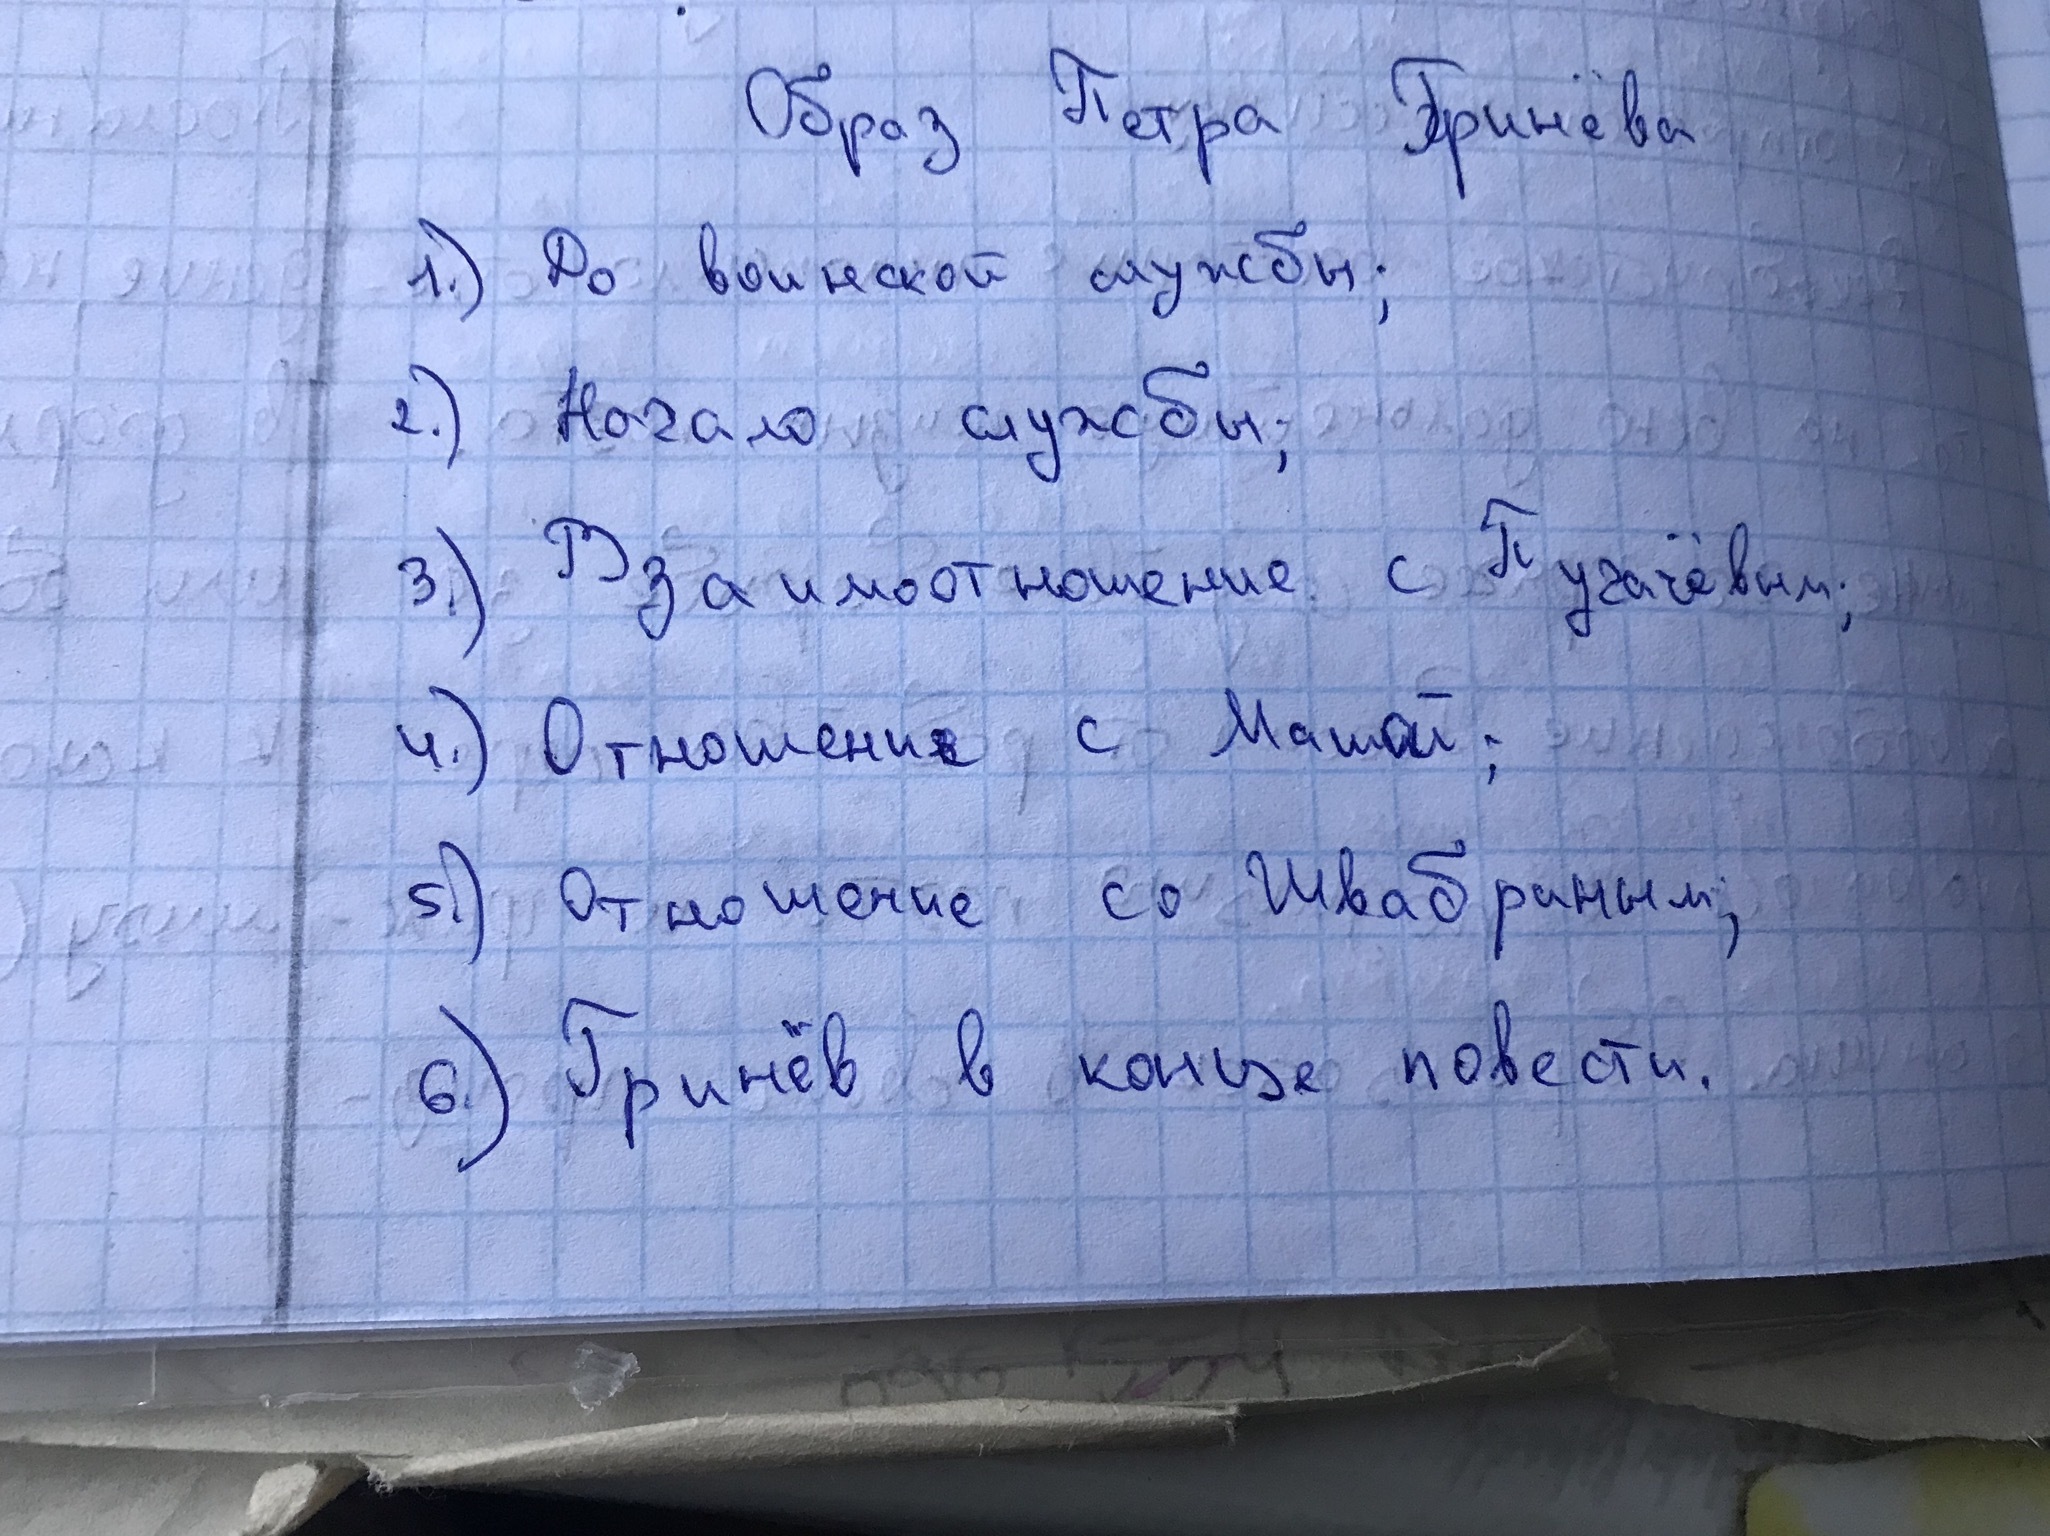 Образ Петра Гринёва
1.) До воинской службы;
2.) Начало службы;
3.) Взаимоотношение с Пугачёвым;
4.) Отношение с Машей;
5.) Отношение со Швабриным;
6.) Гринёв в конце повести.